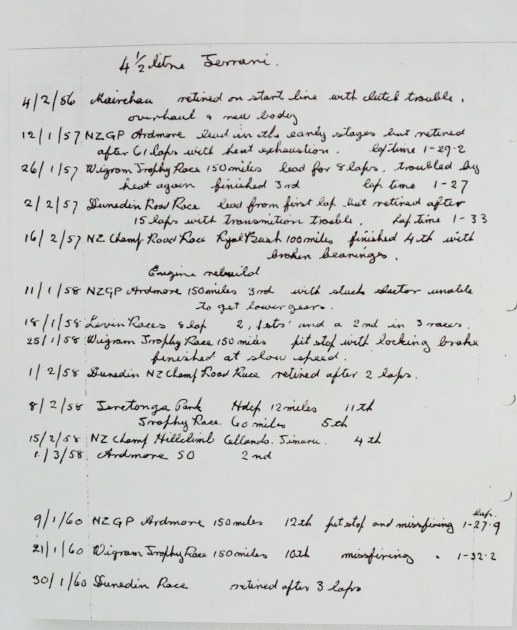 4 1/2 litre Ferrari.
4/2/56 Mairehau retired on start line with clutch trouble.
overhaul & new body
12/1/57 NZGP Ardmore lead in the early stages but retired
after 61 laps with heat exhaustion. lap time 1-29-2
26/1/57 Wigram Trophy Race 150 miles lead for 8 laps, troubled by
heat again finished 3rd lap time 1-27
2/2/57 Dunedin Road Race lead from first lap but retired after
15 laps with transmition trouble. Lap time 1-33
16/2/57 NZ Champ Road Race Ryal Bush 100 miles finished 4th with
broken bearings.
Engine rebuild
11/1/58 NZGP Ardmore 150 miles 3rd with stuck selector unable
to get lower gears.
18/1/58 Levin Races 8 lap 2, 1sts and a 2nd in 3 races.
25/1/58 Wigram Trophy Race 150 miles pit stop with locking brake
finished at slow speed.
1/2/58 Dunedin NZ Champ Road Race retired after 2 laps.
8/2/58 Teretonga Park Hdcp 12 miles 11th
Trophy Race 60 miles 5th
15/2/58 NZ Champ Hillclimb Timaru. 4th
1/3/58 Ardmore 50 2nd
9/1/60 NZGP Ardmore 150 miles 12th pit stop and missfiring Laps. 1-27-9
21/1/60 Wigram Trophy Race 150 miles 10th missfiring . 1-32-2
30/1/60 Dunedin Race retired after 3 laps